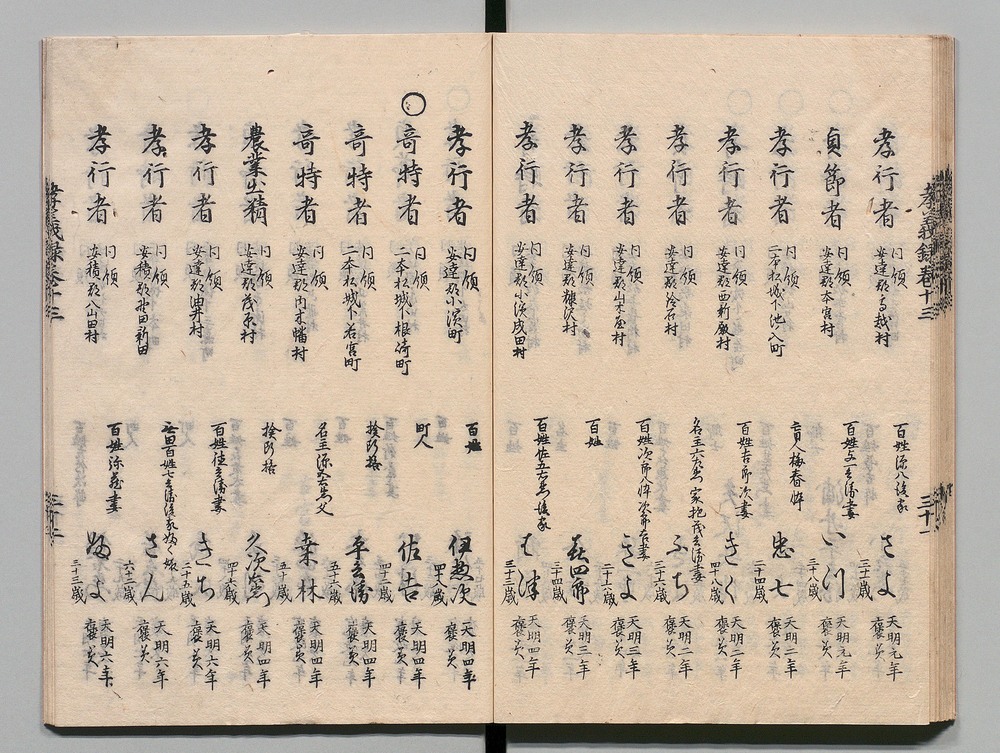 孝義録巻十三
三十一
孝行者 同領 安達郡高越村 百姓源八後家 さよ 三十歳 天明元年 褒美
貞節者 同領 安達郡本宮村 百姓与一兵衛妻 いつ 三十八歳 天明元年 褒美
孝行者 同領 二本松城下池ノ入町 盲人梅春忰 忠七 二十四歳 天明二年 褒美
孝行者 同領 安達郡西新殿村 百姓吉郎次妻 きく 四十八歳 天明二年 褒美
孝行者 同領 安達郡冷石村 名主六右衛門家抱茂兵衛妻 ふち 三十六歳 天明二年 褒美
孝行者 同領 安達郡山木屋村 百姓次郎八忰次郎右衛門妻 きよ 二十八歳 天明三年 褒美
孝行者 同領 安達郡糠沢村 百姓 喜四郎 三十四歳 天明三年 褒美
孝行者 同領 安達郡小浜成田村 百姓佐五右衛門後家 はつ 三十三歳 天明三年 褒美
孝行者 同領 安達郡小浜町 百姓 伊惣次 四十八歳 天明四年 褒美
○
奇特者 同領 二本松城下根崎町 町人 佐吉 四十二歳 天明四年 褒美
奇特者 同領 二本松城下若宮町 検断格 平兵衛 五十六歳 天明四年 褒美
奇特者 同領 安達郡内木幡村 名主源五右衛門父 桑林 五十歳 天明四年 褒美
農業出精 同領 安達郡茂原村 検断格 久次右衛門 四十六歳 天明四年 褒美
孝行者 同領 安達郡油井村 百姓佳兵衛妻 きち 二十九歳 天明六年 褒美
孝行者 同領 安積郡野田新田 百姓七兵衛後家ゆく娘 さん 六十二歳 天明六年 褒美
孝行者 同領 安積郡八山田村 百姓弥茂妻 ぬよ 三十三歳 天明六年 褒美
孝義録巻十三